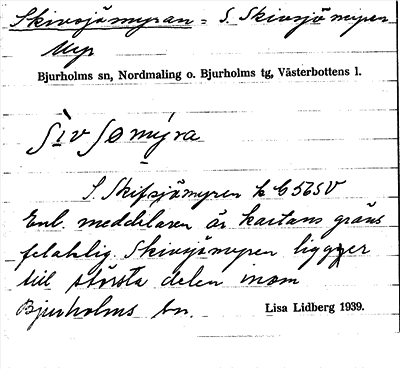 Skivsjömyran = S. Skivsjömyren
Myr
Bjurholms sn, Nordmaling o. Bjurholms tg, Västerbottens l.
S. Skifsjömyren k G 565V
Enl. meddelaren är kartans gräns
felaktig. Skivsjömyren ligger
till största delen inom
Bjurholms sn.
Lisa Lidberg 1939.